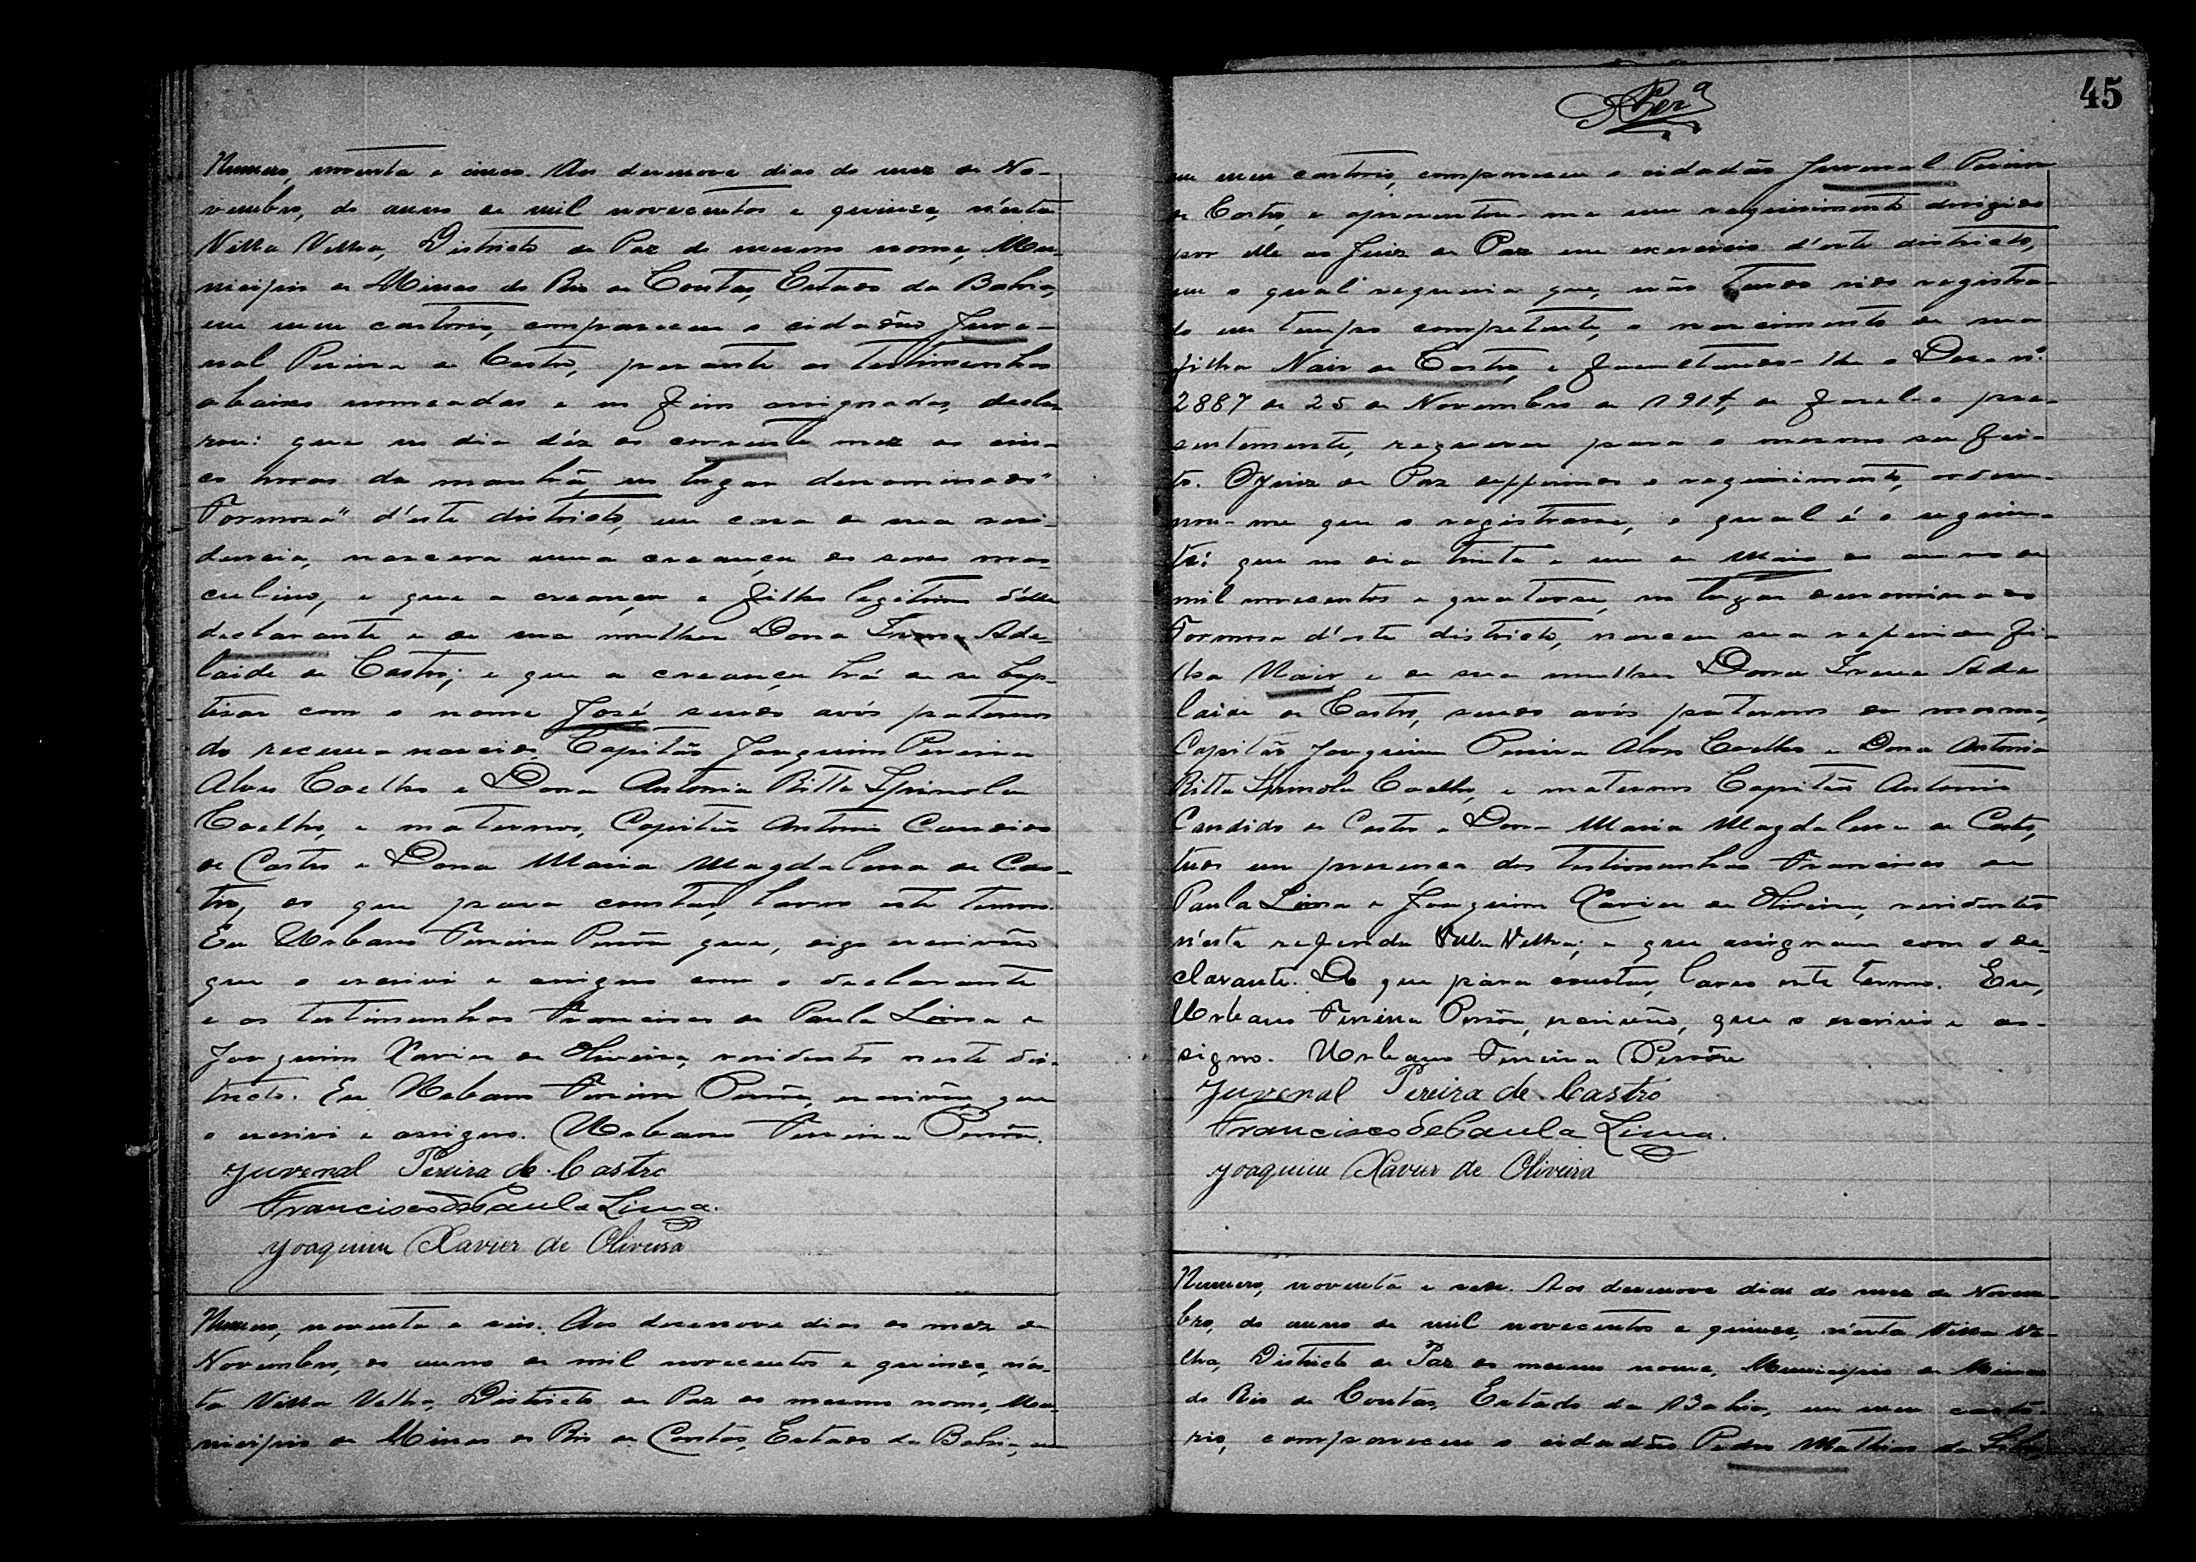 Numero, noventa e cinco. Aos desenove dias do mez de No-
vembro, do anno de mil novecentos e quinse, n'esta
Villa Velha, Districto de Paz do mesmo nome, Mu-
nicipio de Minas do Rio de Contas, Estado da Bahia,
em meu cartorio, compareceu o cidadão Juve-
nal Pereira de Castro, perante as testimunhas
abaixo nomeadas e no fim assignadas, decla-
rou: que no dia déz do corrente mez as cin-
co horas da manhã no lugar denominado "
Formosa" d'este districto, em casa de sua resi-
dencia, nascera uma creança do sexo mas-
culino, e que a creança é filho legitimo d'elle
declarante e de sua mulher Dona Irena Ade-
laide de Castro; e que a creança há de se bap-
tisar com o nome José sendo avós paternos
do recem-nascido Capitão Joaquim Pereira
Alves Coelho e Dona Antonia Ritta Spinola
Coelho, e maternos, Capitão Antonio Candido
de Castro e Dona Maria Magdalena de Cas-
tro, do que para constar, lavro este termo.
Eu Urbano Ferreira que, digo escrivão
que o escrivi e assigno com o declarante
e as testimunhas Francisco de Paula Lima e
Joaquim Xavier de Oliveira, residentes neste dis-
tricto. Eu Urbano Ferreira escrivão, que
o escrivi e assigno. Urbano Ferreira
Juvenal Pereira de Castro
Francisco de Paula Lima.
Joaquim Xavier de Oliveira
Numero, noventa e seis. Aos desenove dias do mez de
Novembro, do anno de mil novecentos e quinse, n'es-
ta Villa Velha, Districto de Paz do mesmo nome, Mu-
nicipio de Minas do Rio de Contas, Estado da Bahia, em
45
em meu cartorio, compareceu o cidadão Juvenal Pereira
de Castro, e apresentou-me um requerimento dirigido
por elle ao Juiz de Paz em exercicio d'este districto,
em o qual requeria que, não tendo sido registra-
do em tempo competente, o nascimento de sua
filha Nair de Castro, e facultando-lhe o Dec. nº
2887 de 25 de Novembro de 1914, de fazel-o pre-
sentemente, requerer para o mesmo ser fei-
to. O Juiz de Paz defferindo o requerimento, orden-
nou-me que o registrasse, o qual é o seguin-
te: que no dia trinta e um de Maio do anno de
mil novecentos e quatorse, no lugar denominado
Formosa d'este districto, nasceu sua referida fi-
lha Nair e de sua mulher Dona Irena Ade
laide de Castro, sendo avós paternos da mesma,
Capitão Joaquim Pereira Alves Coelho e Dona Antonia
Ritta Spinola Coelho, e maternos Capitão Antonio
Candido de Castro e Dona Maria Magdalena de Castro,
tudo em presença das testimunhas Francisco de
Paula Lima e Joaquim Xavier de Oliveira, residentes
n'esta referida Villa Velha; e que assignam com o de-
clarante. Do que para constar, lavro este termo. Eu,
Urbano Ferreira escrivão, que o escrivi e as-
signo. Urbano Ferreira
Juvenal Pereira de Castro
Francisco de Paula Lima.
Joaquim Xavier de Oliveira
Numero, noventa e sete. Aos desenove dias do mez de Novem-
bro, do anno de mil novecentos e quinse, n'esta Villa Ve-
lha, Districto de Paz do mesmo nome, Municipio de Minas
do Rio de Contas, Estado da Bahia, em meu cartó-
rio, compareceu o cidadão Pedro Mathias da Silva